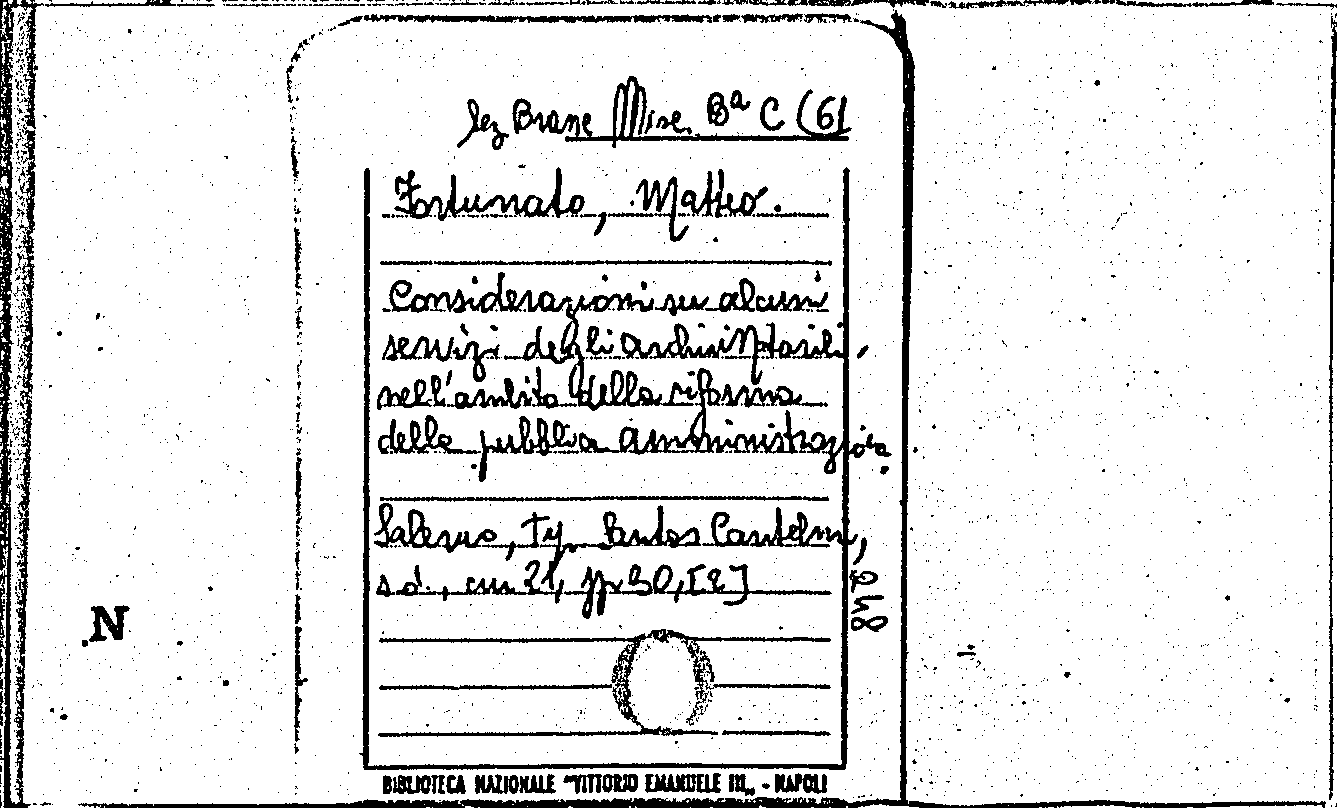 Sez Branc Misc. Bª C (61
Fortunato, Matteo.
Considerazioni su alcuni
servizi degli archivi Notarili,
nell'ambito della riforma
della pubblica amministrazione.
Salerno, Tip. Cantelmi,
s.d., cm 21, pp 30, [2]
N
BIBLIOTECA NAZIONALE "VITTORIO EMANUELE III„ - NAPOLI